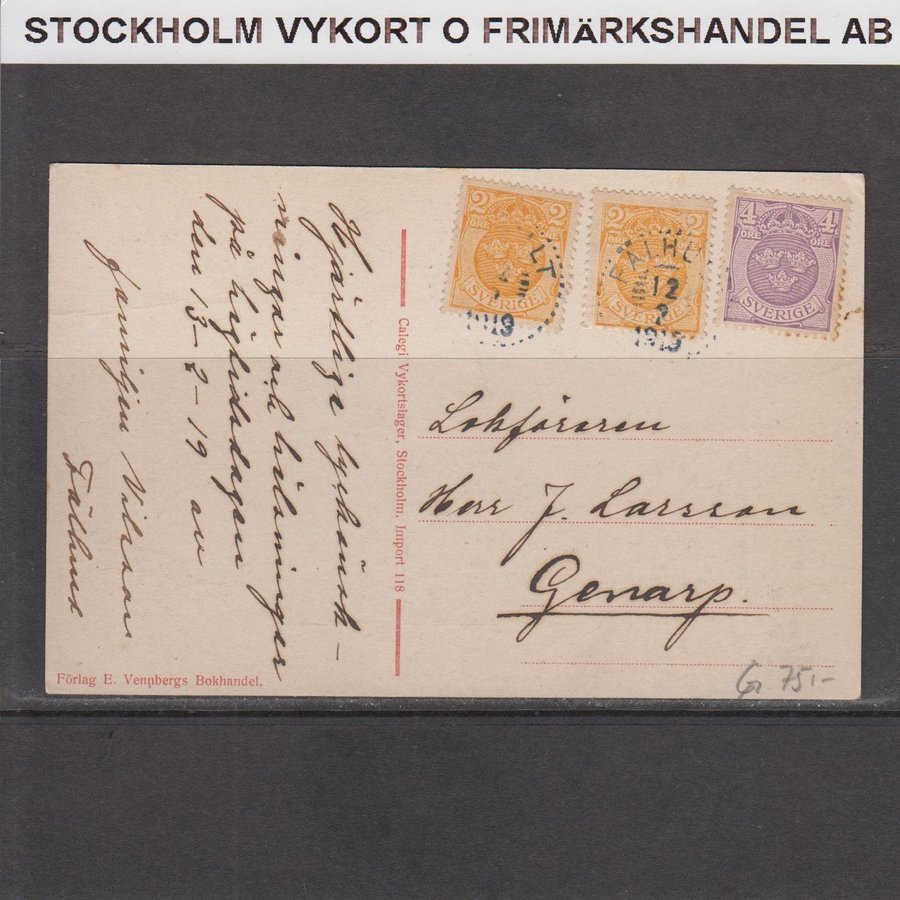 STOCKHOLM VYKORT O FRIMÄRKSHANDEL AB
2 2
ÖRE ÖRE
SVERIGE
LT
1919
2 2
ÖRE
SVERIGE
12
2
4 4
ÖRE ÖRE
SVERIGE
Hjärtliga lyckönsk-
ningar och hälsningar
på högtidsdagen
den 13-2-19 av
familjen Nilsson
Calegi Vykortslager, Stockholm. Import 118
Lokföraren
Herr J. Larsson
Genarp.
Förlag E. Vennbergs Bokhandel.
75:-